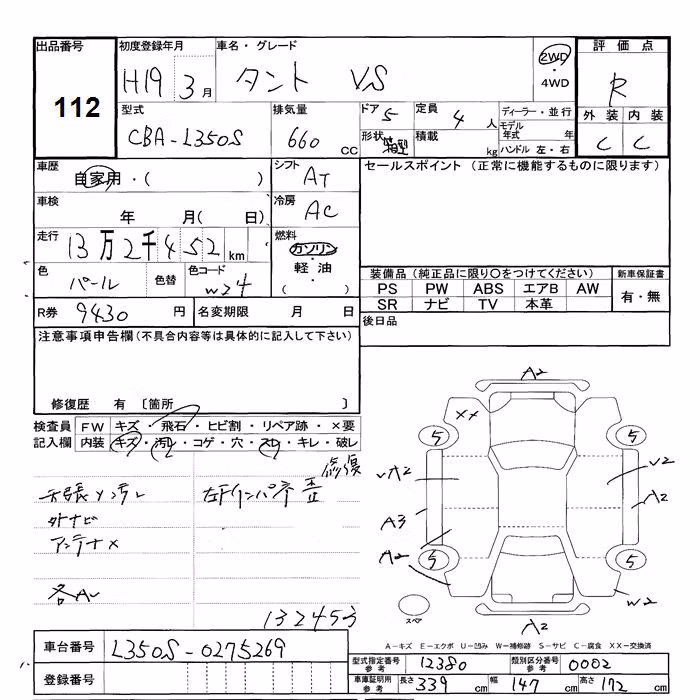 出品番号 初度登録年月 車名・グレード 評価点
112
H19 3月 タント VS 2WD・4WD R
型式 排気量 ドア 定員 ディーラー・並行 外装 内装
CBA-L350S 660cc 5 4人 モデル年式 年
形状 箱型 積載 kg ハンドル 左・右 C C
車歴 自家用・( ) シフト AT セールスポイント (正常に機能するものに限ります)
車検 年 月( 日) 冷房 AC
走行 13万2千452km 燃料 ガソリン・軽油・( )
色 パール 色替 色コード W24 装備品(純正品に限り○をつけてください) 新車保証書
PS PW ABS エアB AW 有・無
SR ナビ TV 本革
R券 9430円 名変期限 月 日 後日品
注意事項申告欄(不具合内容等は具体的に記入して下さい)
修復歴 有 〔箇所 〕
検査員記入欄 FW キズ・飛石・ヒビ割・リペア跡・×要
内装 キズ・汚レ・コゲ・穴・スレ・キレ・破レ
修復
天張リ汚レ
外ナビ
アンテナ×
各AU
132453
A2
XX
5 5
UA2 U2
A3 A2
A2
5 5
W2
スペア A2
A-キズ E-エクボ U-凹み W-補修跡 S-サビ C-腐食 XX-交換済
車台番号 L350S-0275269
型式指定番号参考 12380 類別区分番号参考 0002
登録番号
車庫証明用参考 長さ 339cm 幅 147cm 高さ 172cm